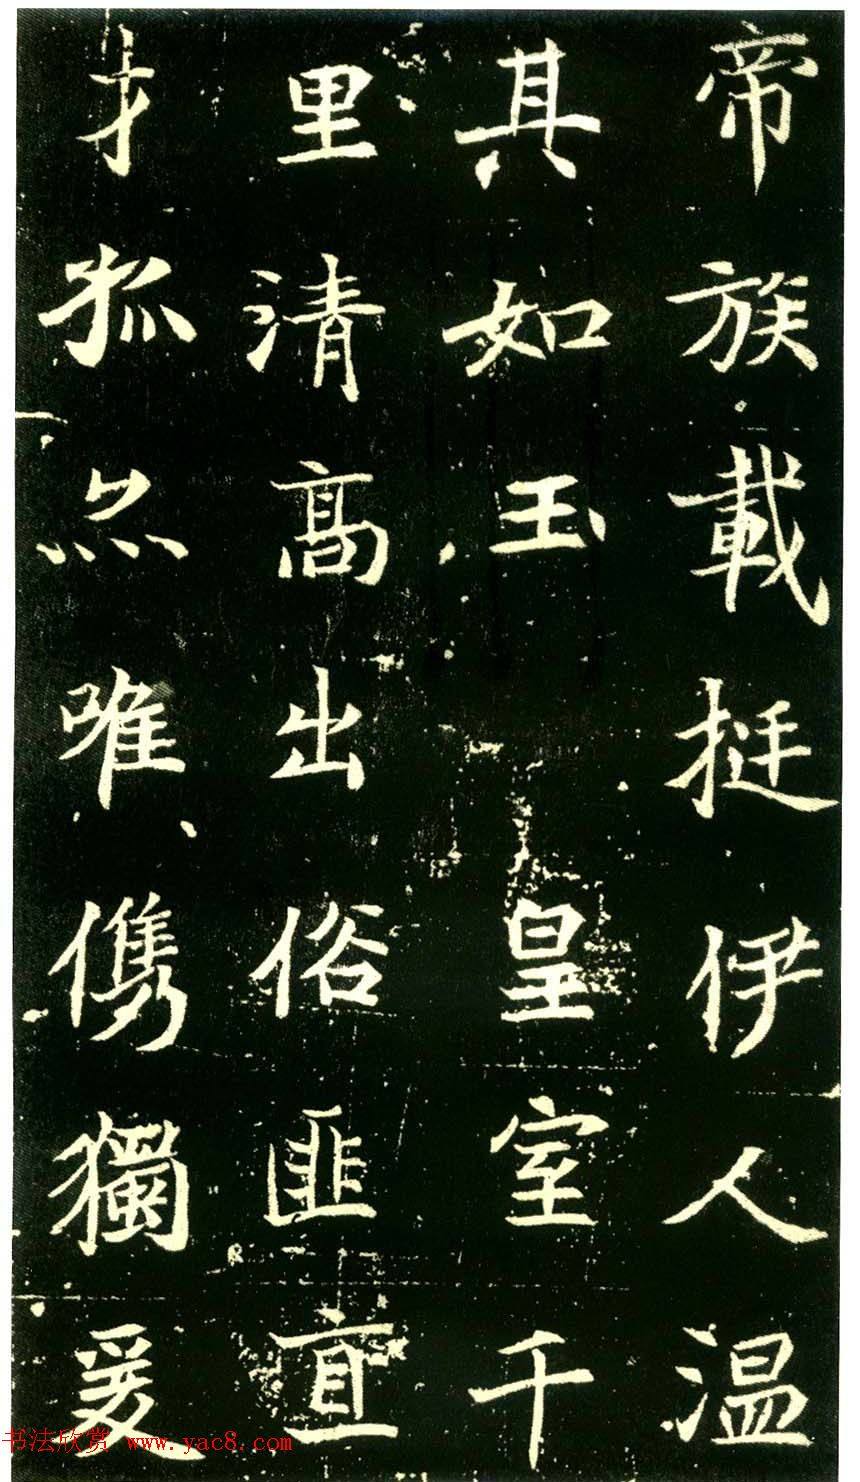 帝族載挺伊人温
其如玉皇室千
里清高出俗匪直
才孤然唯儁獨爰
书法欣赏 www.yac8.com